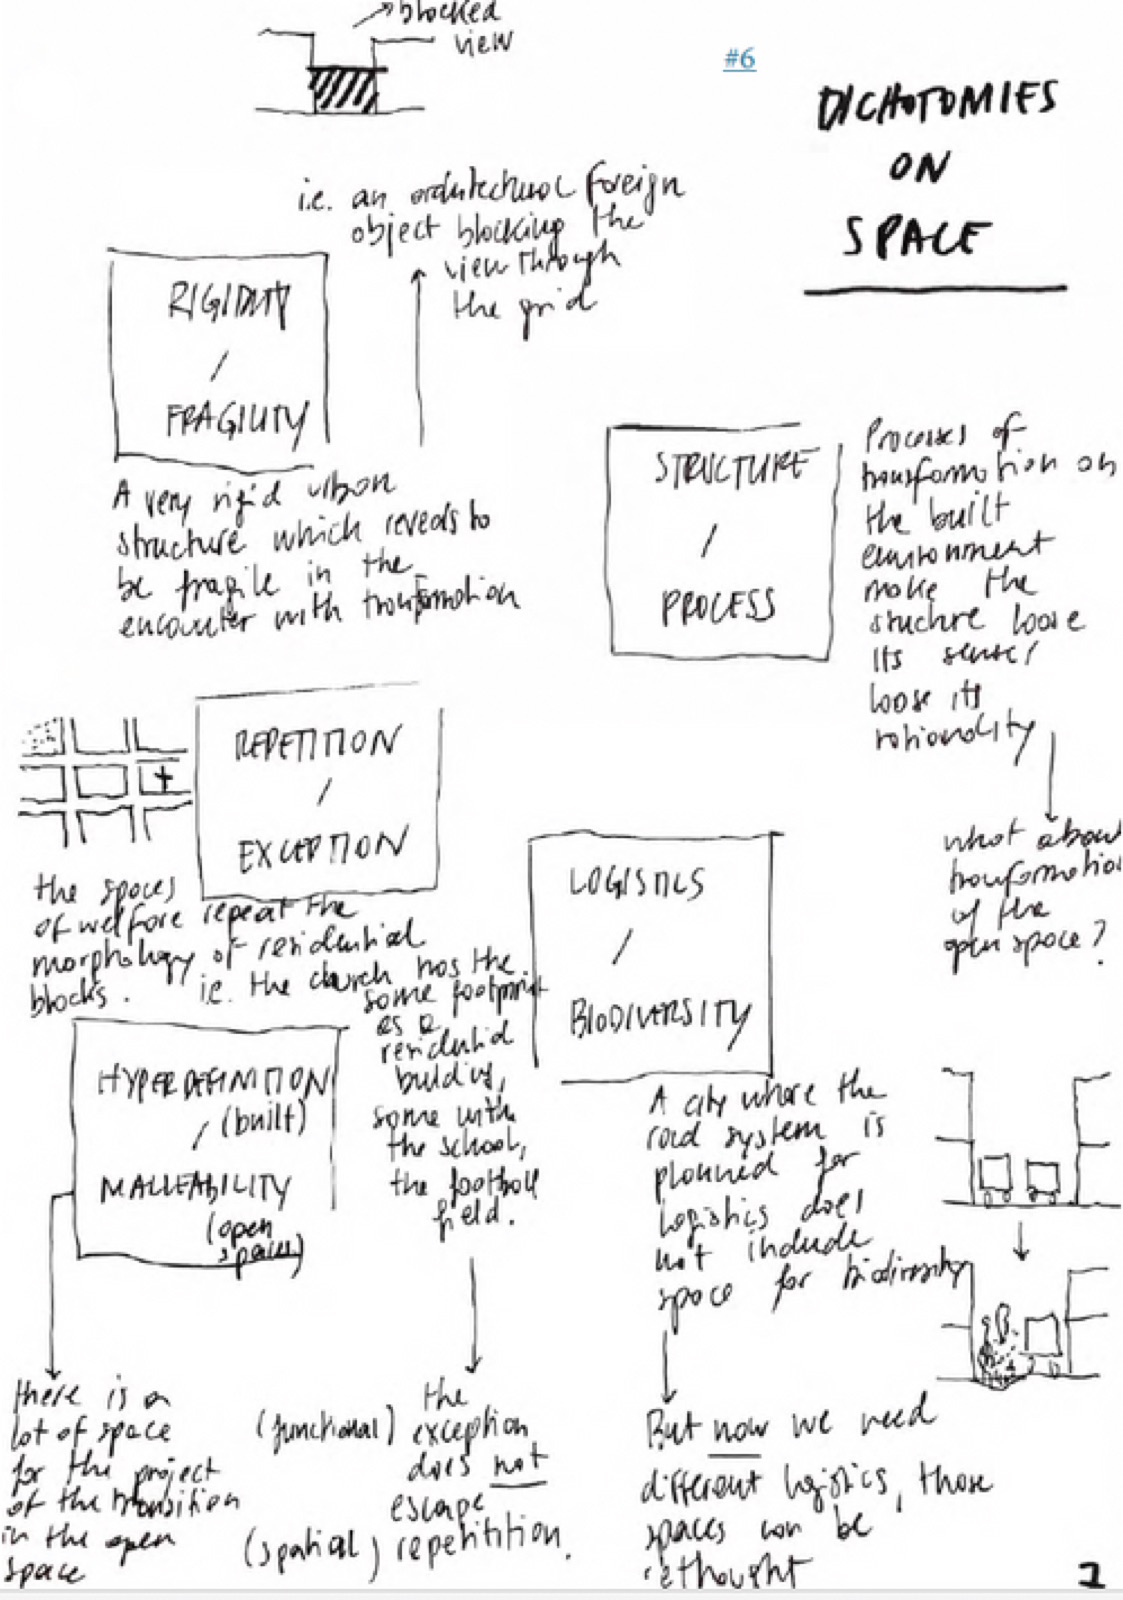 blocked
view
#6
DICHOTOMIES
ON
SPACE
i.e. an architectural foreign
object blocking the
view through
the grid
RIGIDITY
/
FRAGILITY
A very rigid urban
structure which reveals to
be fragile in the
encounter with transformation
STRUCTURE
/
PROCESS
Processes of
transformation on
the built
environment
make the
structure loose
its sense/
loose its
rationality
what about
transformation
of the
open space?
REPETITION
/
EXCEPTION
the spaces
of welfare repeat the
morphology of residential
blocks. i.e. the church has the
same footprint
as a
residential
building,
same with
the school,
the football
field.
(functional) the
exception
does not
escape
(spatial) repetitition.
HYPERDEFINITION
/ (built)
MALLEABILITY
(open
spaces)
there is a
lot of space
for the project
of the transition
in the open
space
LOGISTICS
/
BIODIVERSITY
A city where the
road system is
planned for
logistics does
not include
space for biodiversity
But now we need
different logistics, those
spaces can be
rethought
1